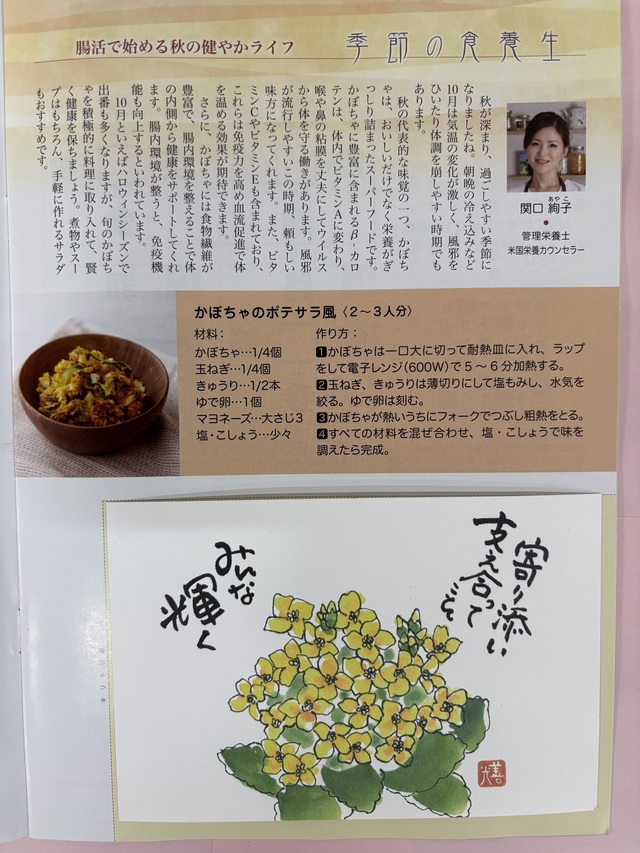 腸活で始める秋の健やかライフ
季節の食養生
関口 絢子
あや こ
管理栄養士
米国栄養カウンセラー
秋が深まり、過ごしやすい季節に
なりましたね。朝晩の冷え込みなど
10月は気温の変化が激しく、風邪を
ひいたり体調を崩しやすい時期でも
あります。
秋の代表的な味覚の一つ、かぼち
ゃは、おいしいだけでなく栄養がぎ
っしり詰まったスーパーフードです。
かぼちゃに豊富に含まれるβ‐カロ
テンは、体内でビタミンAに変わり、
喉や鼻の粘膜を丈夫にしてウイルス
から体を守る働きがあります。風邪
が流行しやすいこの時期、頼もしい
味方になってくれます。また、ビタ
ミンCやビタミンEも含まれており、
これらは免疫力を高め血流促進で体
を温める効果が期待できます。
さらに、かぼちゃには食物繊維が
豊富で、腸内環境を整えることで体
の内側から健康をサポートしてくれ
ます。腸内環境が整うと、免疫機
能も向上するといわれています。
10月といえばハロウィンシーズンで
出番も多くなりますが、旬のかぼち
ゃを積極的に料理に取り入れて、賢
く健康を保ちましょう。煮物やスー
プはもちろん、手軽に作れるサラダ
もおすすめです。
かぼちゃのポテサラ風〈2～3人分〉
材料：
かぼちゃ…1/4個
玉ねぎ…1/4個
きゅうり…1/2本
ゆで卵…1個
マヨネーズ…大さじ3
塩・こしょう…少々
作り方：
1かぼちゃは一口大に切って耐熱皿に入れ、ラップ
をして電子レンジ(600W)で5～6分加熱する。
2玉ねぎ、きゅうりは薄切りにして塩もみし、水気を
絞る。ゆで卵は刻む。
3かぼちゃが熱いうちにフォークでつぶし粗熱をとる。
4すべての材料を混ぜ合わせ、塩・こしょうで味を
調えたら完成。
寄り添い
支え合って
みんな
輝く